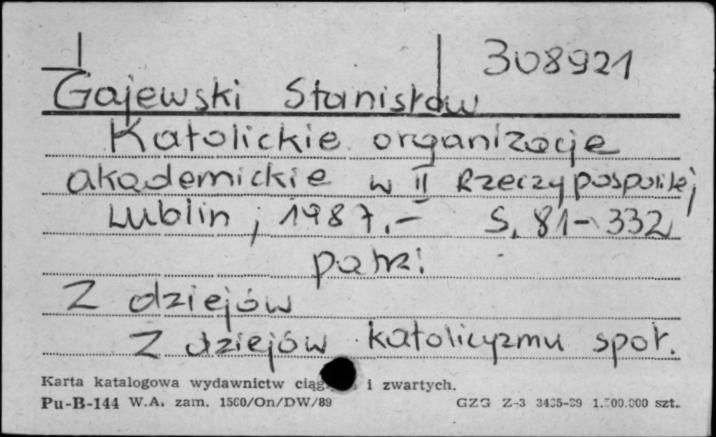 308921
Gajewski Stanisław
Katolickie organizacje
akademickie w II Rzeczypospolitej
Lublin, 1987.- S. 81-332
patrz:
Z dziejów
Z dziejów katolicyzmu społ.
Karta katalogowa wydawnictw i zwartych.
Pu-B-144 W.A. zam. 1500/On/DW/89 GZG Z-3 szt.